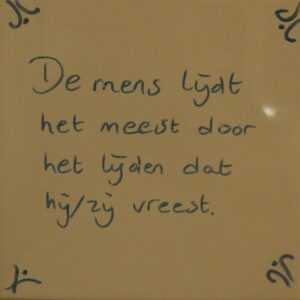 De mens lijdt
het meest door
het lijden dat
hij/zij vreest.